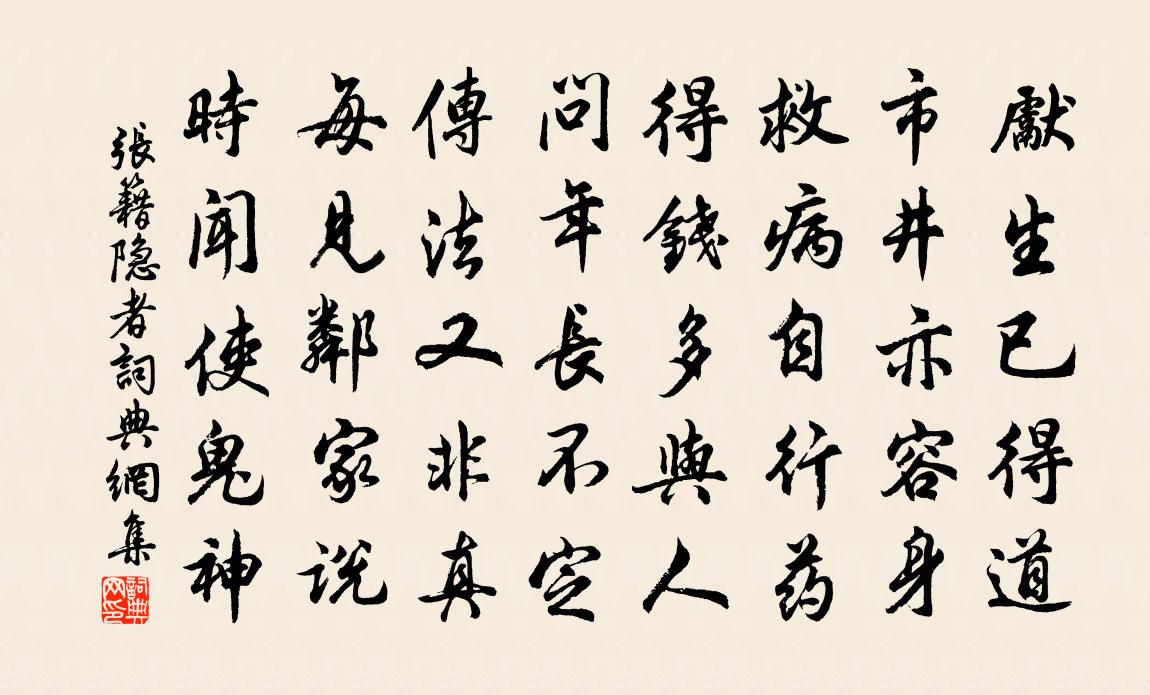 獻生已得道
市井亦容身
救病自行药
得錢多與人
問年長不定
傳法又非真
每見鄰家说
時聞使鬼神
張籍隐者詞典網集
詞典网印